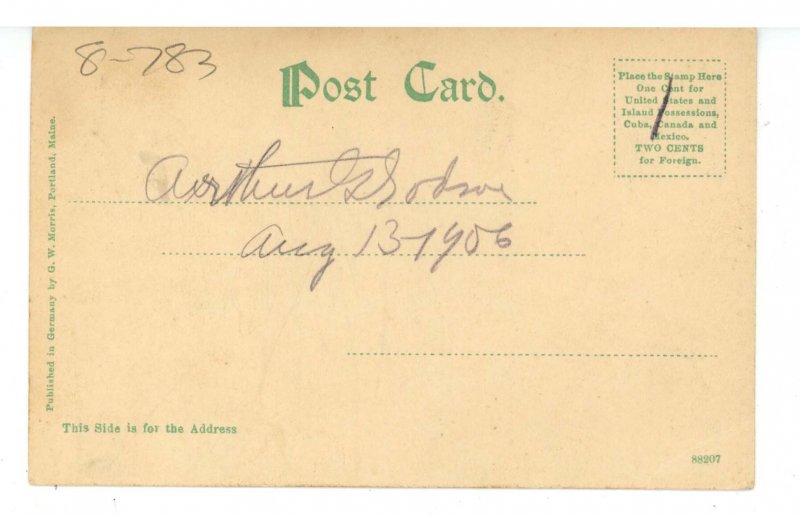 8-783
Post Card.
Place the Stamp Here
One Cent for
United States and
Island Possessions,
Cuba, Canada and
Mexico.
TWO CENTS
for Foreign.
Arthur G
Aug 13-1906
Published in Germany by G. W. Morris, Portland, Maine.
This Side is for the Address
88207